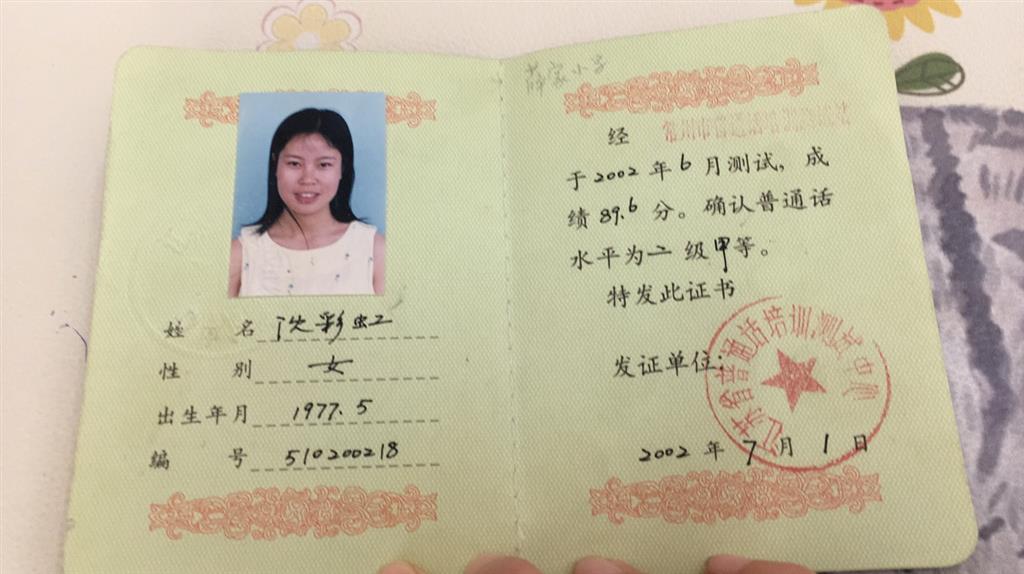 姓 名 沈彩虹
性 别 女
出生年月 1977.5
编 号 510200218
薛家小学
经 常州市普通话培训测试站
于2002年6月测试，成
绩89.6分。确认普通话
水平为二级甲等。
特发此证书
发证单位：
江苏省普通话培训测试中心
2002年7月1日